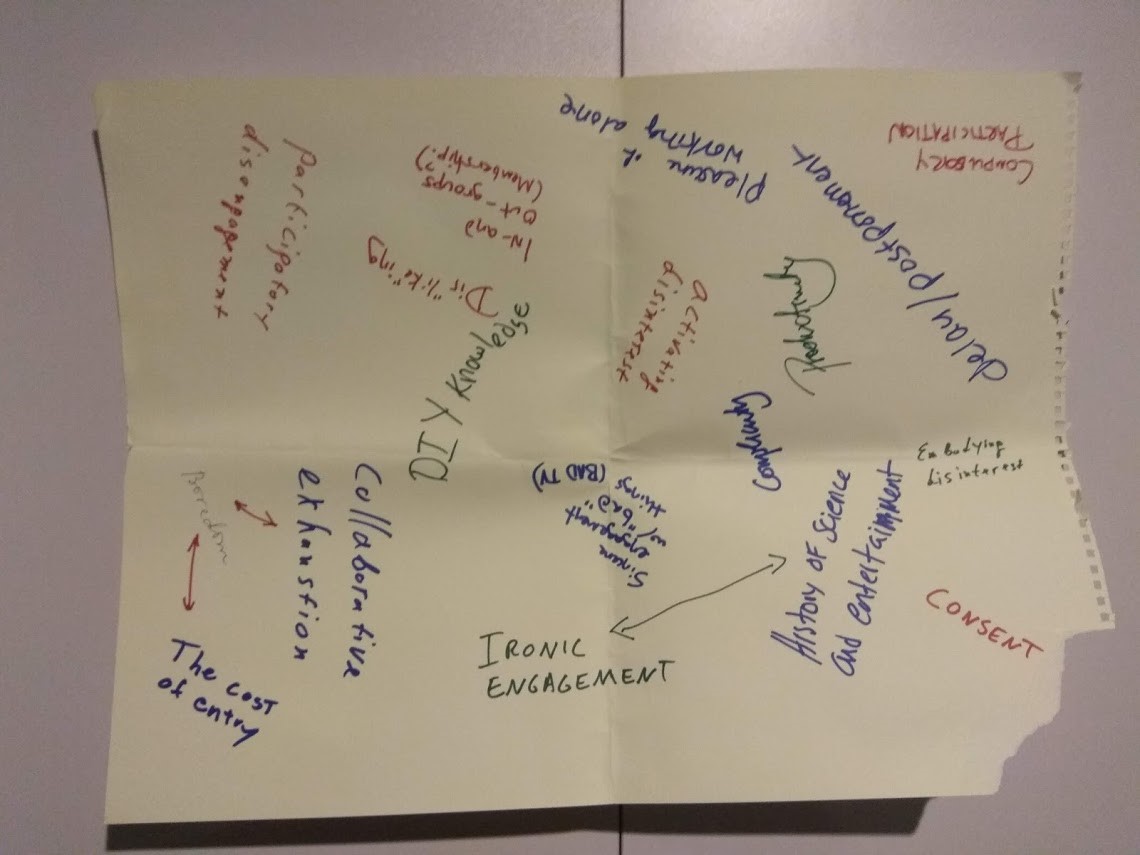 Pleasure of
working alone
COMPULSORY
PARTICIPATION
delay/postponement
participatory
disengagement
IN-and
Out-groups
(Membership?)
Dis"like"ing
activating
disinterest
Productivity
DIY Knowledge
Complicity
Embodying
disinterest
Boredom
Collaborative
exhaustion
Sincere
engagement
w/ "bad"
things
(BAD TV)
History of Science
and entertainment
CONSENT
IRONIC
ENGAGEMENT
The cost
of entry